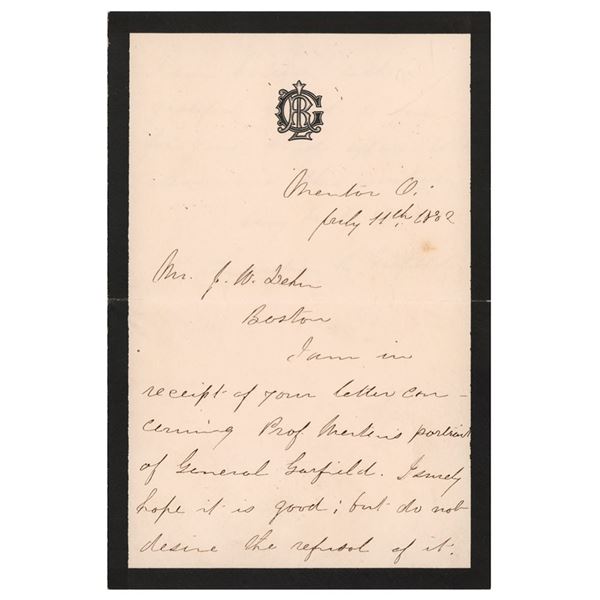 Mentor O.
July 11th, 1882
Mr. J. W.
Boston
I am in
receipt of your letter con-
cerning Prof. portrait
of General Garfield. I surely
hope it is good; but do not
desire the refusal of it.